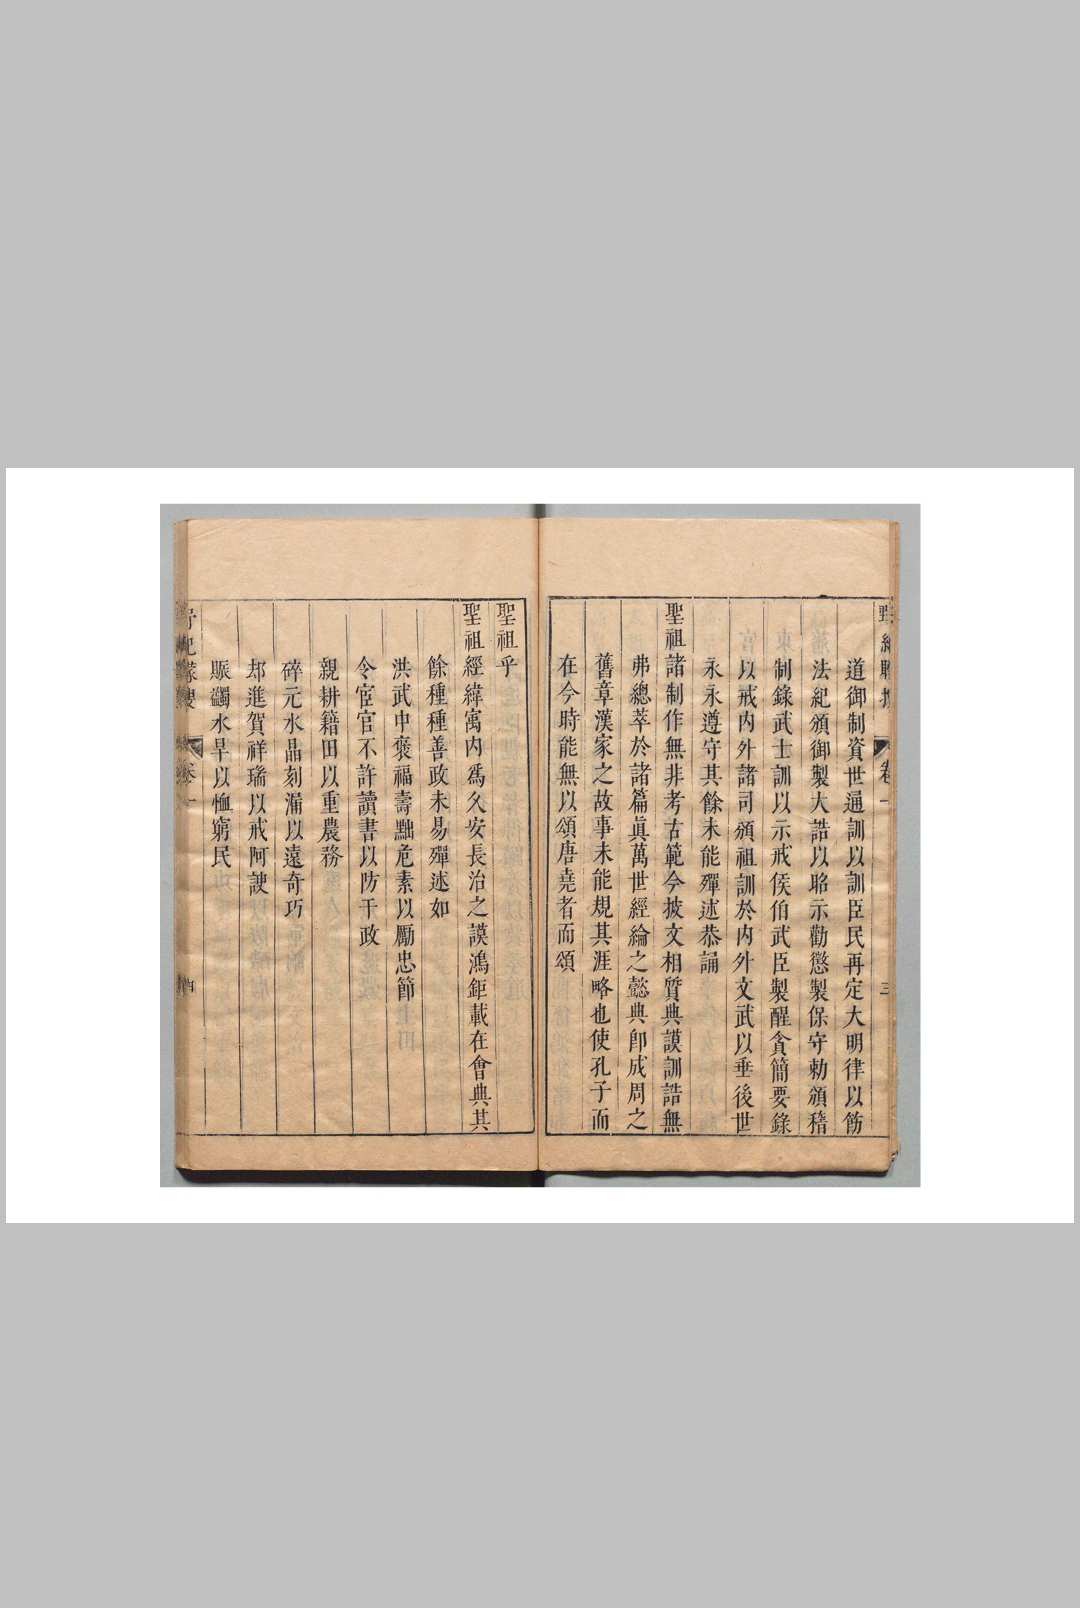 道御制資世通訓以訓臣民再定大明律以飭
法紀頒御製大誥以昭示勸懲製保守勅頒稽
制錄武士訓以示戒侯伯武臣製醒貪簡要錄
以戒內外諸司頒祖訓於內外文武以垂後世
永永遵守其餘未能殫述恭誦
聖祖諸制作無非考古範今披文相質典謨訓誥無
弗總萃於諸篇眞萬世經綸之懿典卽成周之
舊章漢家之故事未能規其涯略也使孔子而
在今時能無以頌唐堯者而頌
卷一
三
聖祖乎
聖祖經緯寓內爲久安長治之謨鴻鉅載在會典其
餘種種善政未易殫述如
洪武中褒福壽黜危素以勵忠節
令宦官不許讀書以防干政
親耕籍田以重農務
碎元水晶刻漏以遠奇巧
却進賀祥瑞以戒阿諛
賑蠲水旱以恤窮民
卷一
四